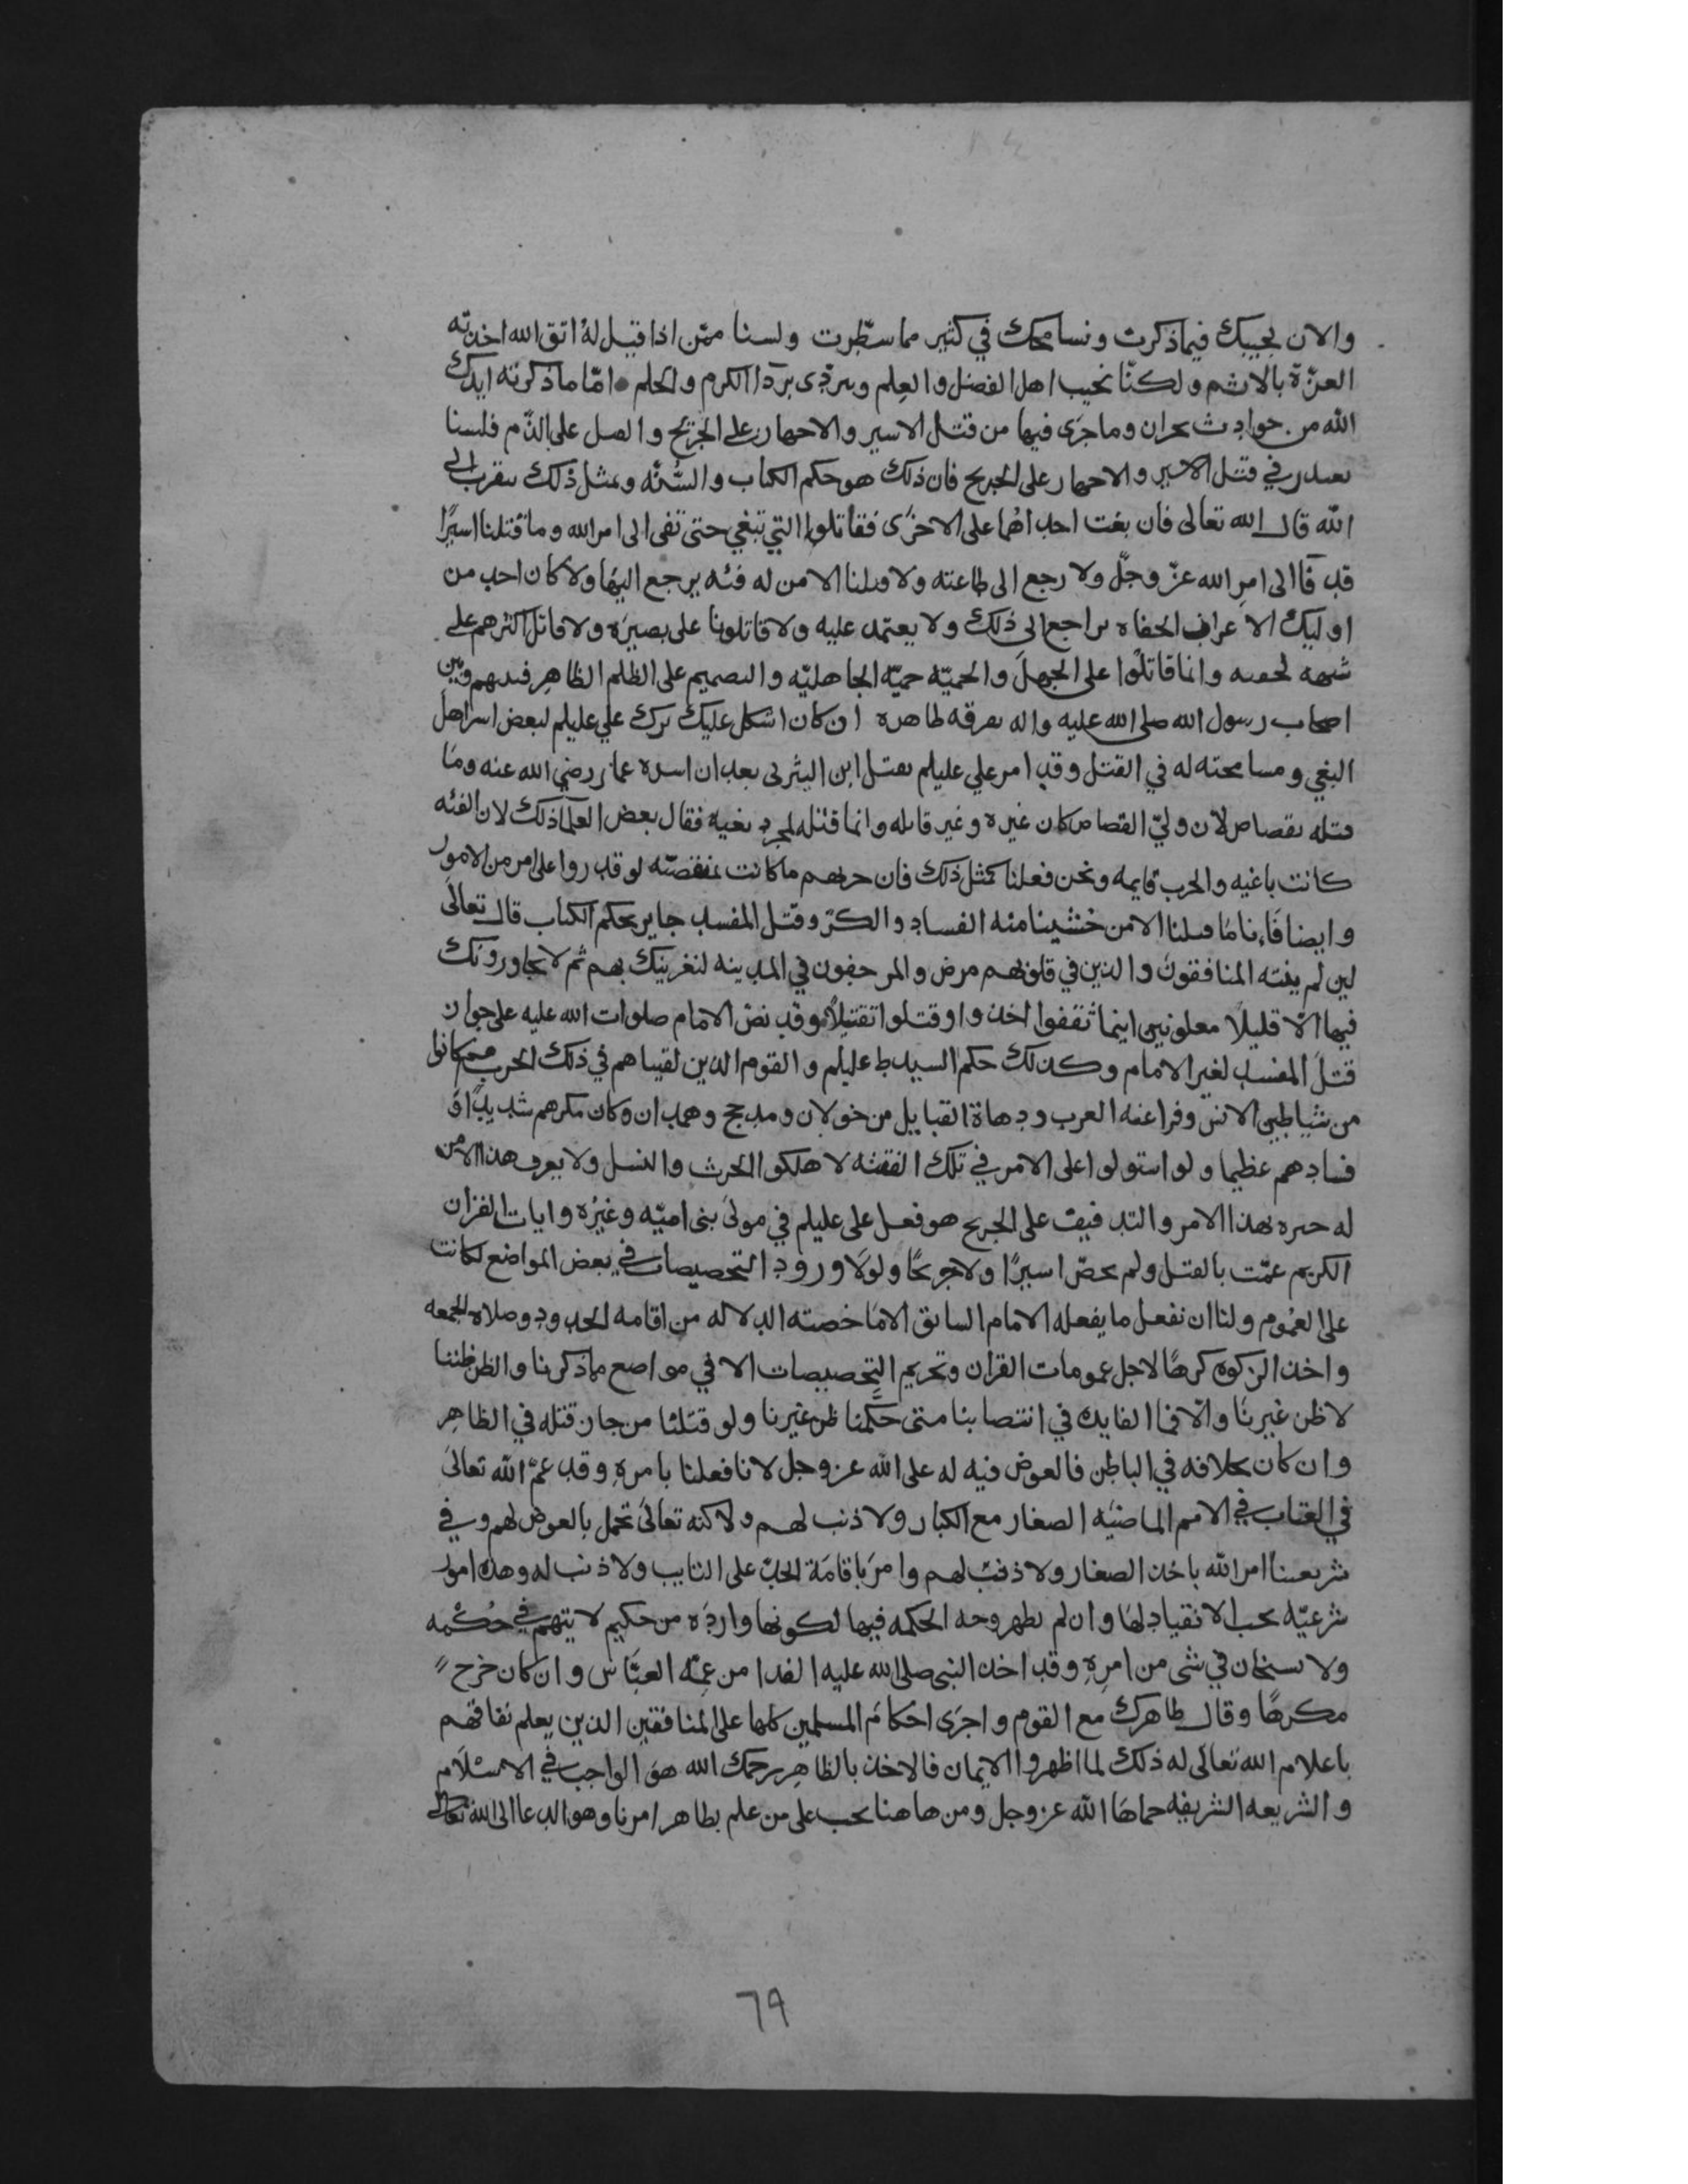 والان نجيبك فيما ذكرت ونسامحك في كثير مما سطرت ولسنا ممن اذا قيل له اتق الله اخذته
العزة بالاثم ولكنا نجيب اهل الفضل والعلم ونتردى بردا الكرم والحلم اما ما ذكرته ايدك
الله من حوادث بحران وما جرى فيها من قتل الاسير والاجهاز على الجريح والفصل على الذم فلسنا
نعتذر في قتل الاسير والاجهاز على الجريح فان ذلك هو حكم الكتاب والسنه وبمثل ذلك نتقرب الى
الله قال الله تعالى فان بغت احداهما على الاخرى فقاتلوا التي تبغي حتى تفى الى امر الله وما قتلنا اسيرًا
قد فا الى امر الله عز وجل ولا رجع الى طاعته ولا قتلنا الا من له فئه يرجع اليها ولا كان احد من
اوليك الاعراب الجفاه يراجع الى ذلك ولا يعتمد عليه ولا قاتلونا على بصيره ولا قاتل اكثرهم على
شبهه وانما قاتلوا على الجهل والحميه حميه الجاهليه والتصميم على الظلم الظاهر فبينهم وبين
اصحاب رسول الله صلى الله عليه واله تفرقه ظاهره ان كان اشكل عليك ترك علي عليلم لبعض اسرا اهل
البغي ومسامحته له في القتل وقد امر علي عليلم بقتل ابن اليثربى بعد ان اسره عمار رضي الله عنه وما
قتله بقصاص لان ولي القصاص كان غيره وغير قاتله وانما قتله لمجرد بغيه فقال بعض العلما ذلك لان الفئه
كانت باغيه والحرب قايمه ونحن فعلنا كمثل ذلك فان حربهم ما كانت بمنقضيه لو قدروا على امر من الامور
وايضا فاننا ما قتلنا الا من خشينا منه الفساد والكر وقتل المفسد جايز بحكم الكتاب قال تعالى
لين لم ينته المنافقون والذين في قلوبهم مرض والمرجفون في المدينه لنغرينك بهم ثم لا يجاورونك
فيها الا قليلا معلونين اينما ثقفوا اخذوا وقتلوا تقتيلا وقد نص الامام صلوات الله عليه على جواز
قتل المفسد لغير الامام وكذلك حكم السيد ط عليلم والقوم الذين لقيناهم في ذلك الحرب ممن كانوا
من شياطين الانس وفراعنه العرب ودهاة القبايل من خولان ومدحج وهمدان وكان مكرهم شديدًا و
فسادهم عظيما ولو استولوا على الامر في تلك الفتنه لاهلكوا الحرث والنسل ولا يعرف هذا الا من
له خبره بهذا الامر والتدفيف على الجريح هو فعل على عليلم في مولى بنى اميه وغيره وايات القران
الكريم عمت بالقتل ولم يخص اسيرًا ولا جريحًا ولولا ورود التخصيصات في بعض المواضع لكانت
على العموم ولنا ان نفعل ما يفعله الامام السابق الا ما خصته الدلاله من اقامه الحدود وصلاه الجمعه
واخذ الزكوه كرهًا لاجل عمومات القران وتحريم التخصيصات الا في مواضع ما ذكرنا والظن ظننا
لا ظن غيرنا والا فما الفايده في انتصابنا متى حكمنا ظن غيرنا ولو قتلنا من جاز قتله في الظاهر
وان كان بخلافه في الباطن فالعوض فيه له على الله عز وجل لانا فعلنا بامره وقد عم الله تعالى
في العقاب في الامم الماضيه الصغار مع الكبار ولا ذنب لهم ولاكنه تعالى تحمل بالعوض لهم وفي
شريعتنا امر الله باخذ الصغار ولا ذنب لهم وامر باقامة الحد على التايب ولا ذنب له وهذه امور
شرعيه يجب الانقياد لها وان لم يظهر وجه الحكمه فيها لكونها وارده من حكيم لا يتهم في حكمه
ولا يستخان في شى من امره وقد اخذ النبى صلى الله عليه الفدا من عمه العباس وان كان خرج
مكرهًا وقال ظاهرك مع القوم واجرى احكام المسلمين كلها على المنافقين الذين يعلم نفاقهم
باعلام الله تعالى له ذلك لما اظهروا الايمان فالاخذ بالظاهر رحمك الله هو الواجب في الاسلام
والشريعه الشريفه حماها الله عز وجل ومن هاهنا يجب على من علم بظاهر امرنا وهو الدعا الى الله تعالى
٦٩